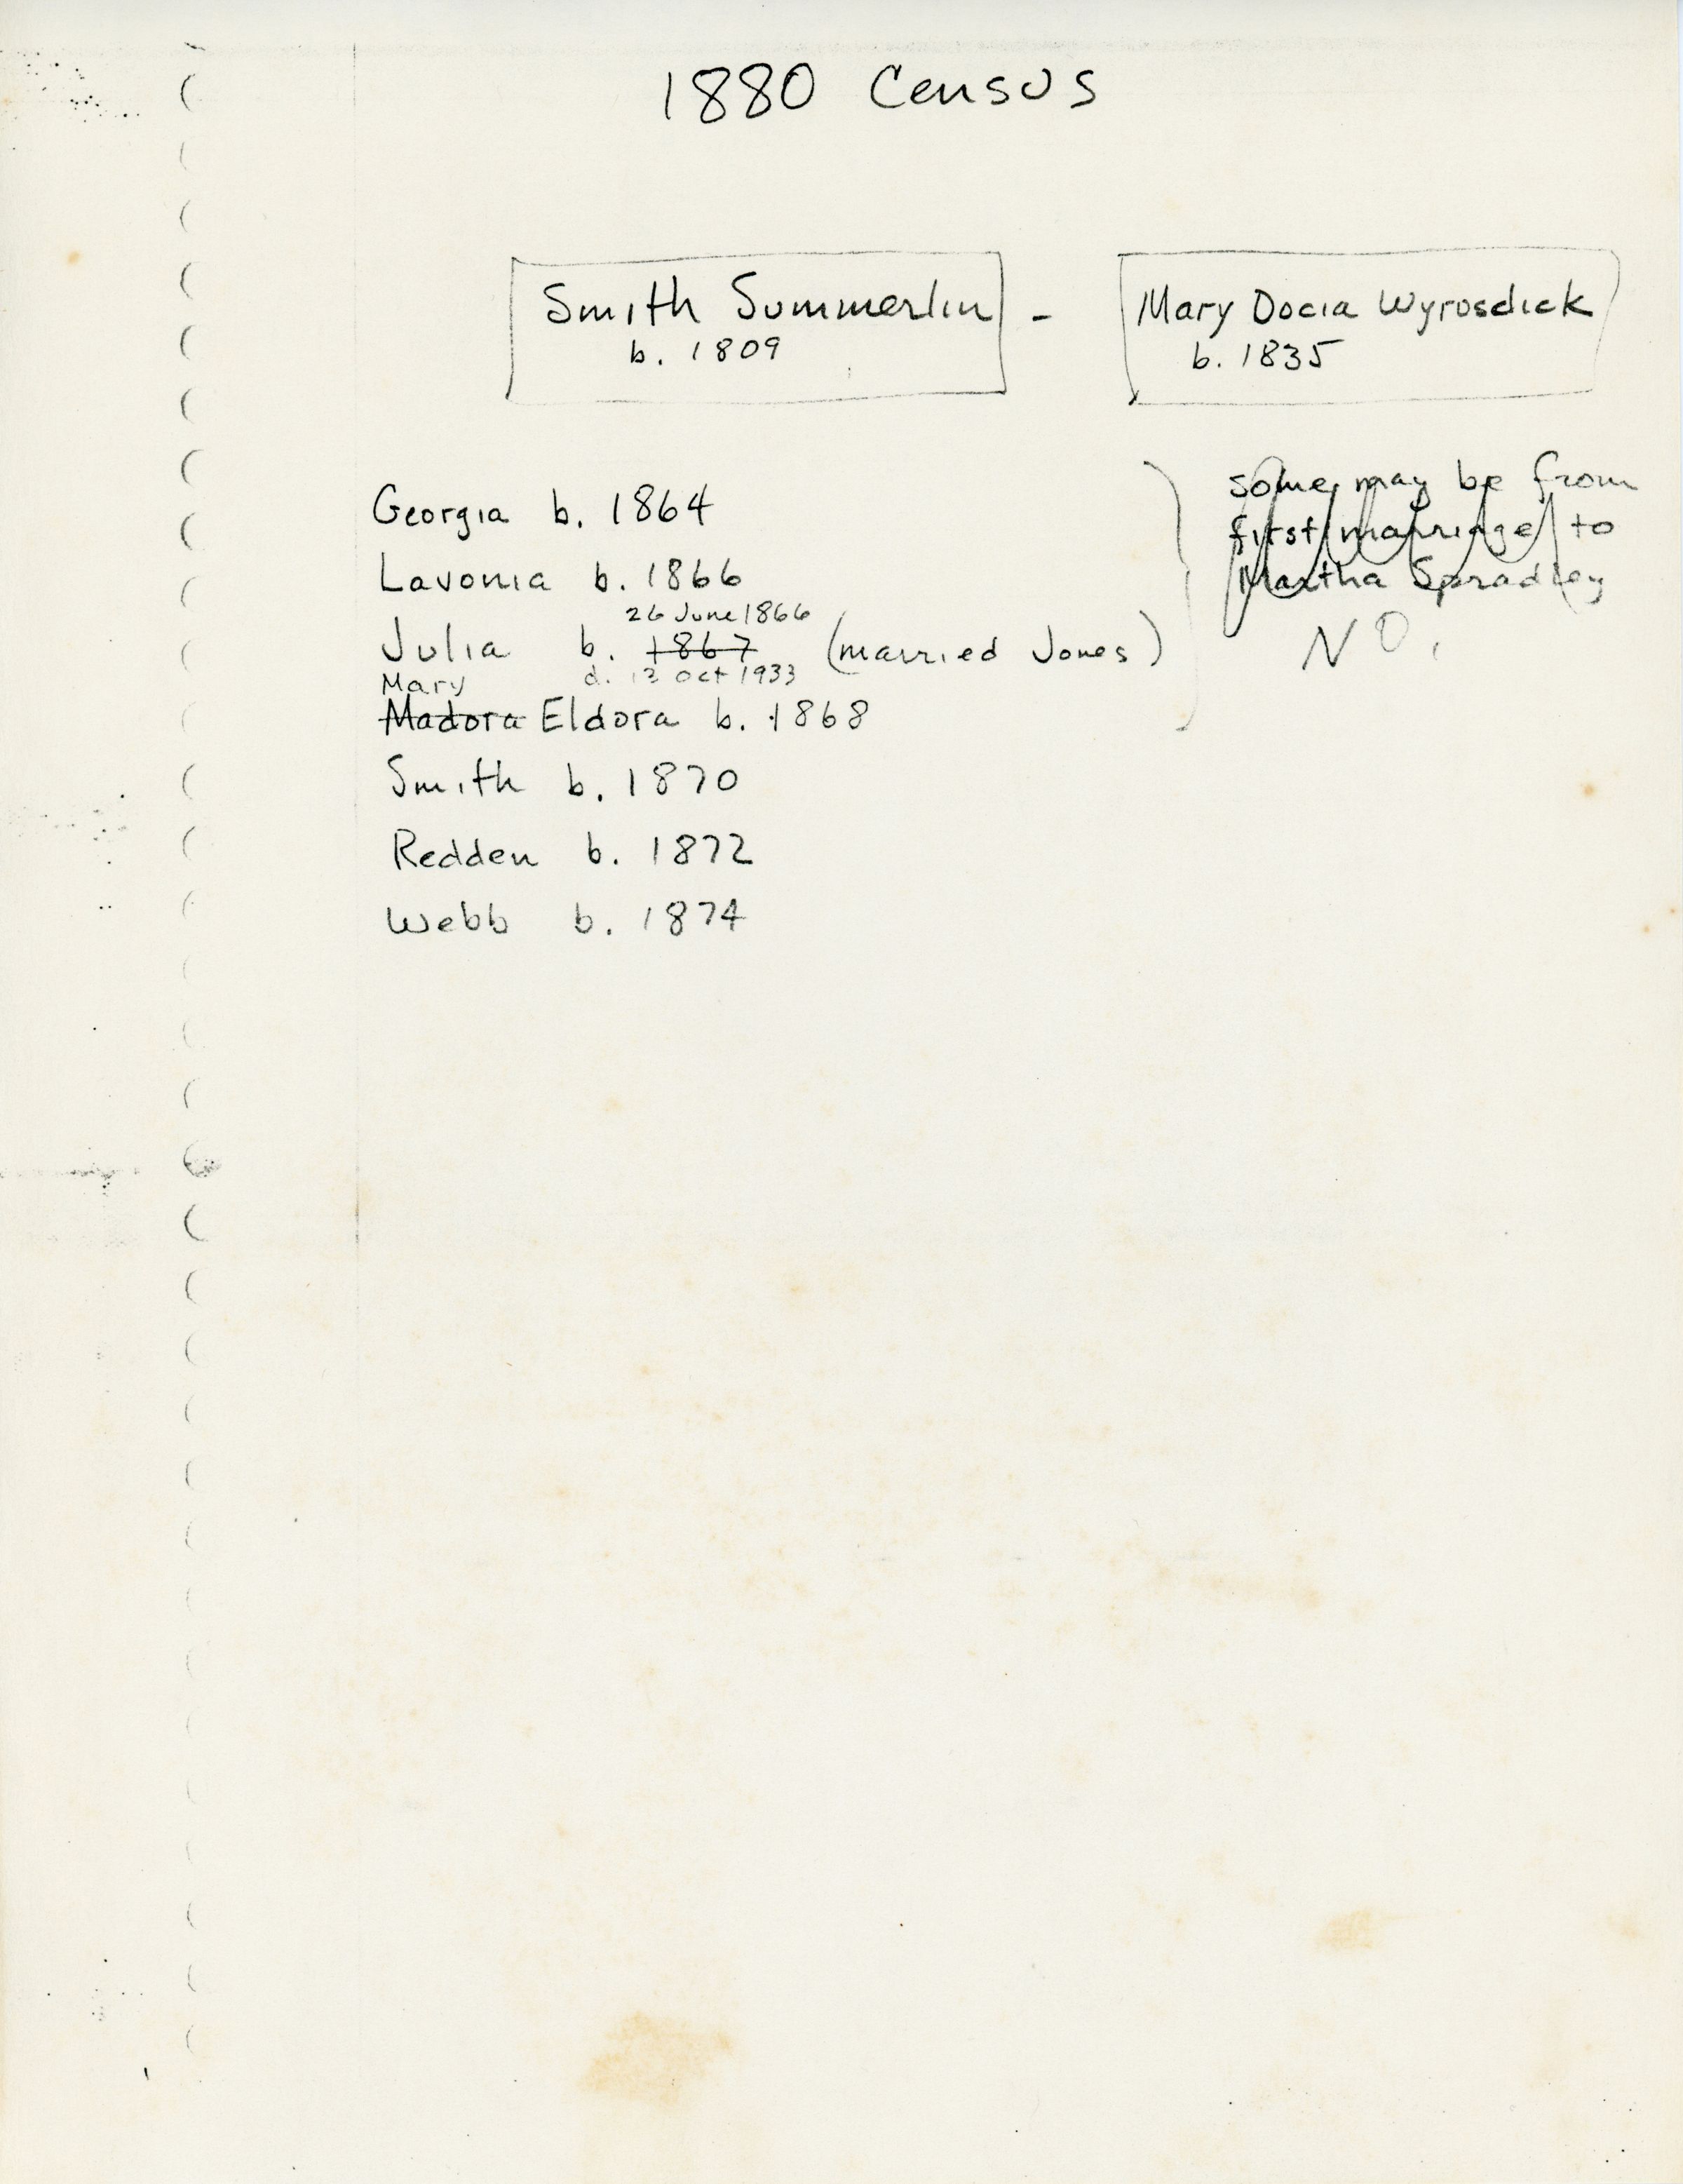 1880 Census
Smith Summerlin - Mary Docia Wyrosdick
b. 1809 b. 1835
some may be from
first marriage to
Martha Spradley
NO.
Georgia b. 1864
Lavonia b. 1866
26 June 1866
Julia b. 1867 (married Jones)
Mary d. 12 Oct 1933
Madora Eldora b. 1868
Smith b. 1870
Redden b. 1872
Webb b. 1874